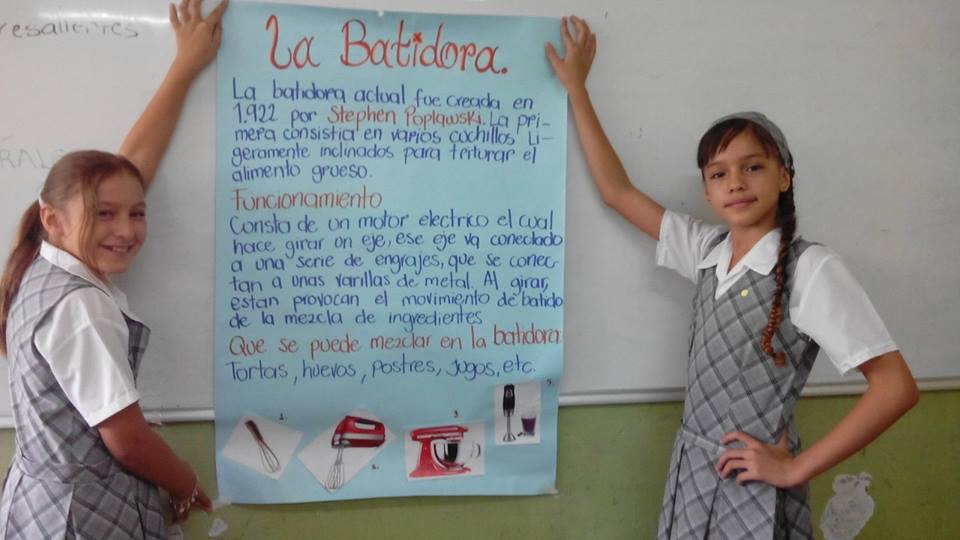 resalientes
La Batidora.
La batidora actual fue creada en
1.922 por Stephen Poplawski. La pri-
mera consistia en varios cuchillos Li-
geramente inclinados para triturar el
alimento grueso.
Funcionamiento
Consta de un motor electrico el cual
hace girar un eje, ese eje va conectado
a una serie de engrajes, que se conec-
tan a unas varillas de metal. Al girar,
estan provocan el movimiento de batido
de la mezcla de ingredientes
Que se puede mezclar en la batidora
Tortas, huevos, postres, Jugos, etc.
1.
2.
3.
5.